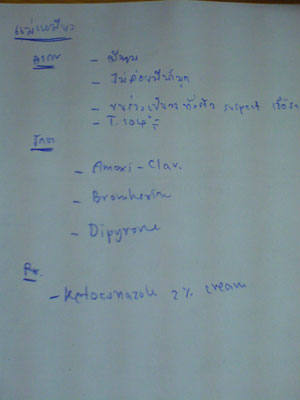 แม่เหมียว
อาการ
- มีไข้
- ไม่ค่อยมีน้ำมูก
- ขนร่วงเป็นวง ทั้งตัว suspect เชื้อรา
- T. 104°F
รักษา
- Amoxi - Clav.
- Bromhexine
- Dipyrone
Rx.
- Ketoconazole 2% cream